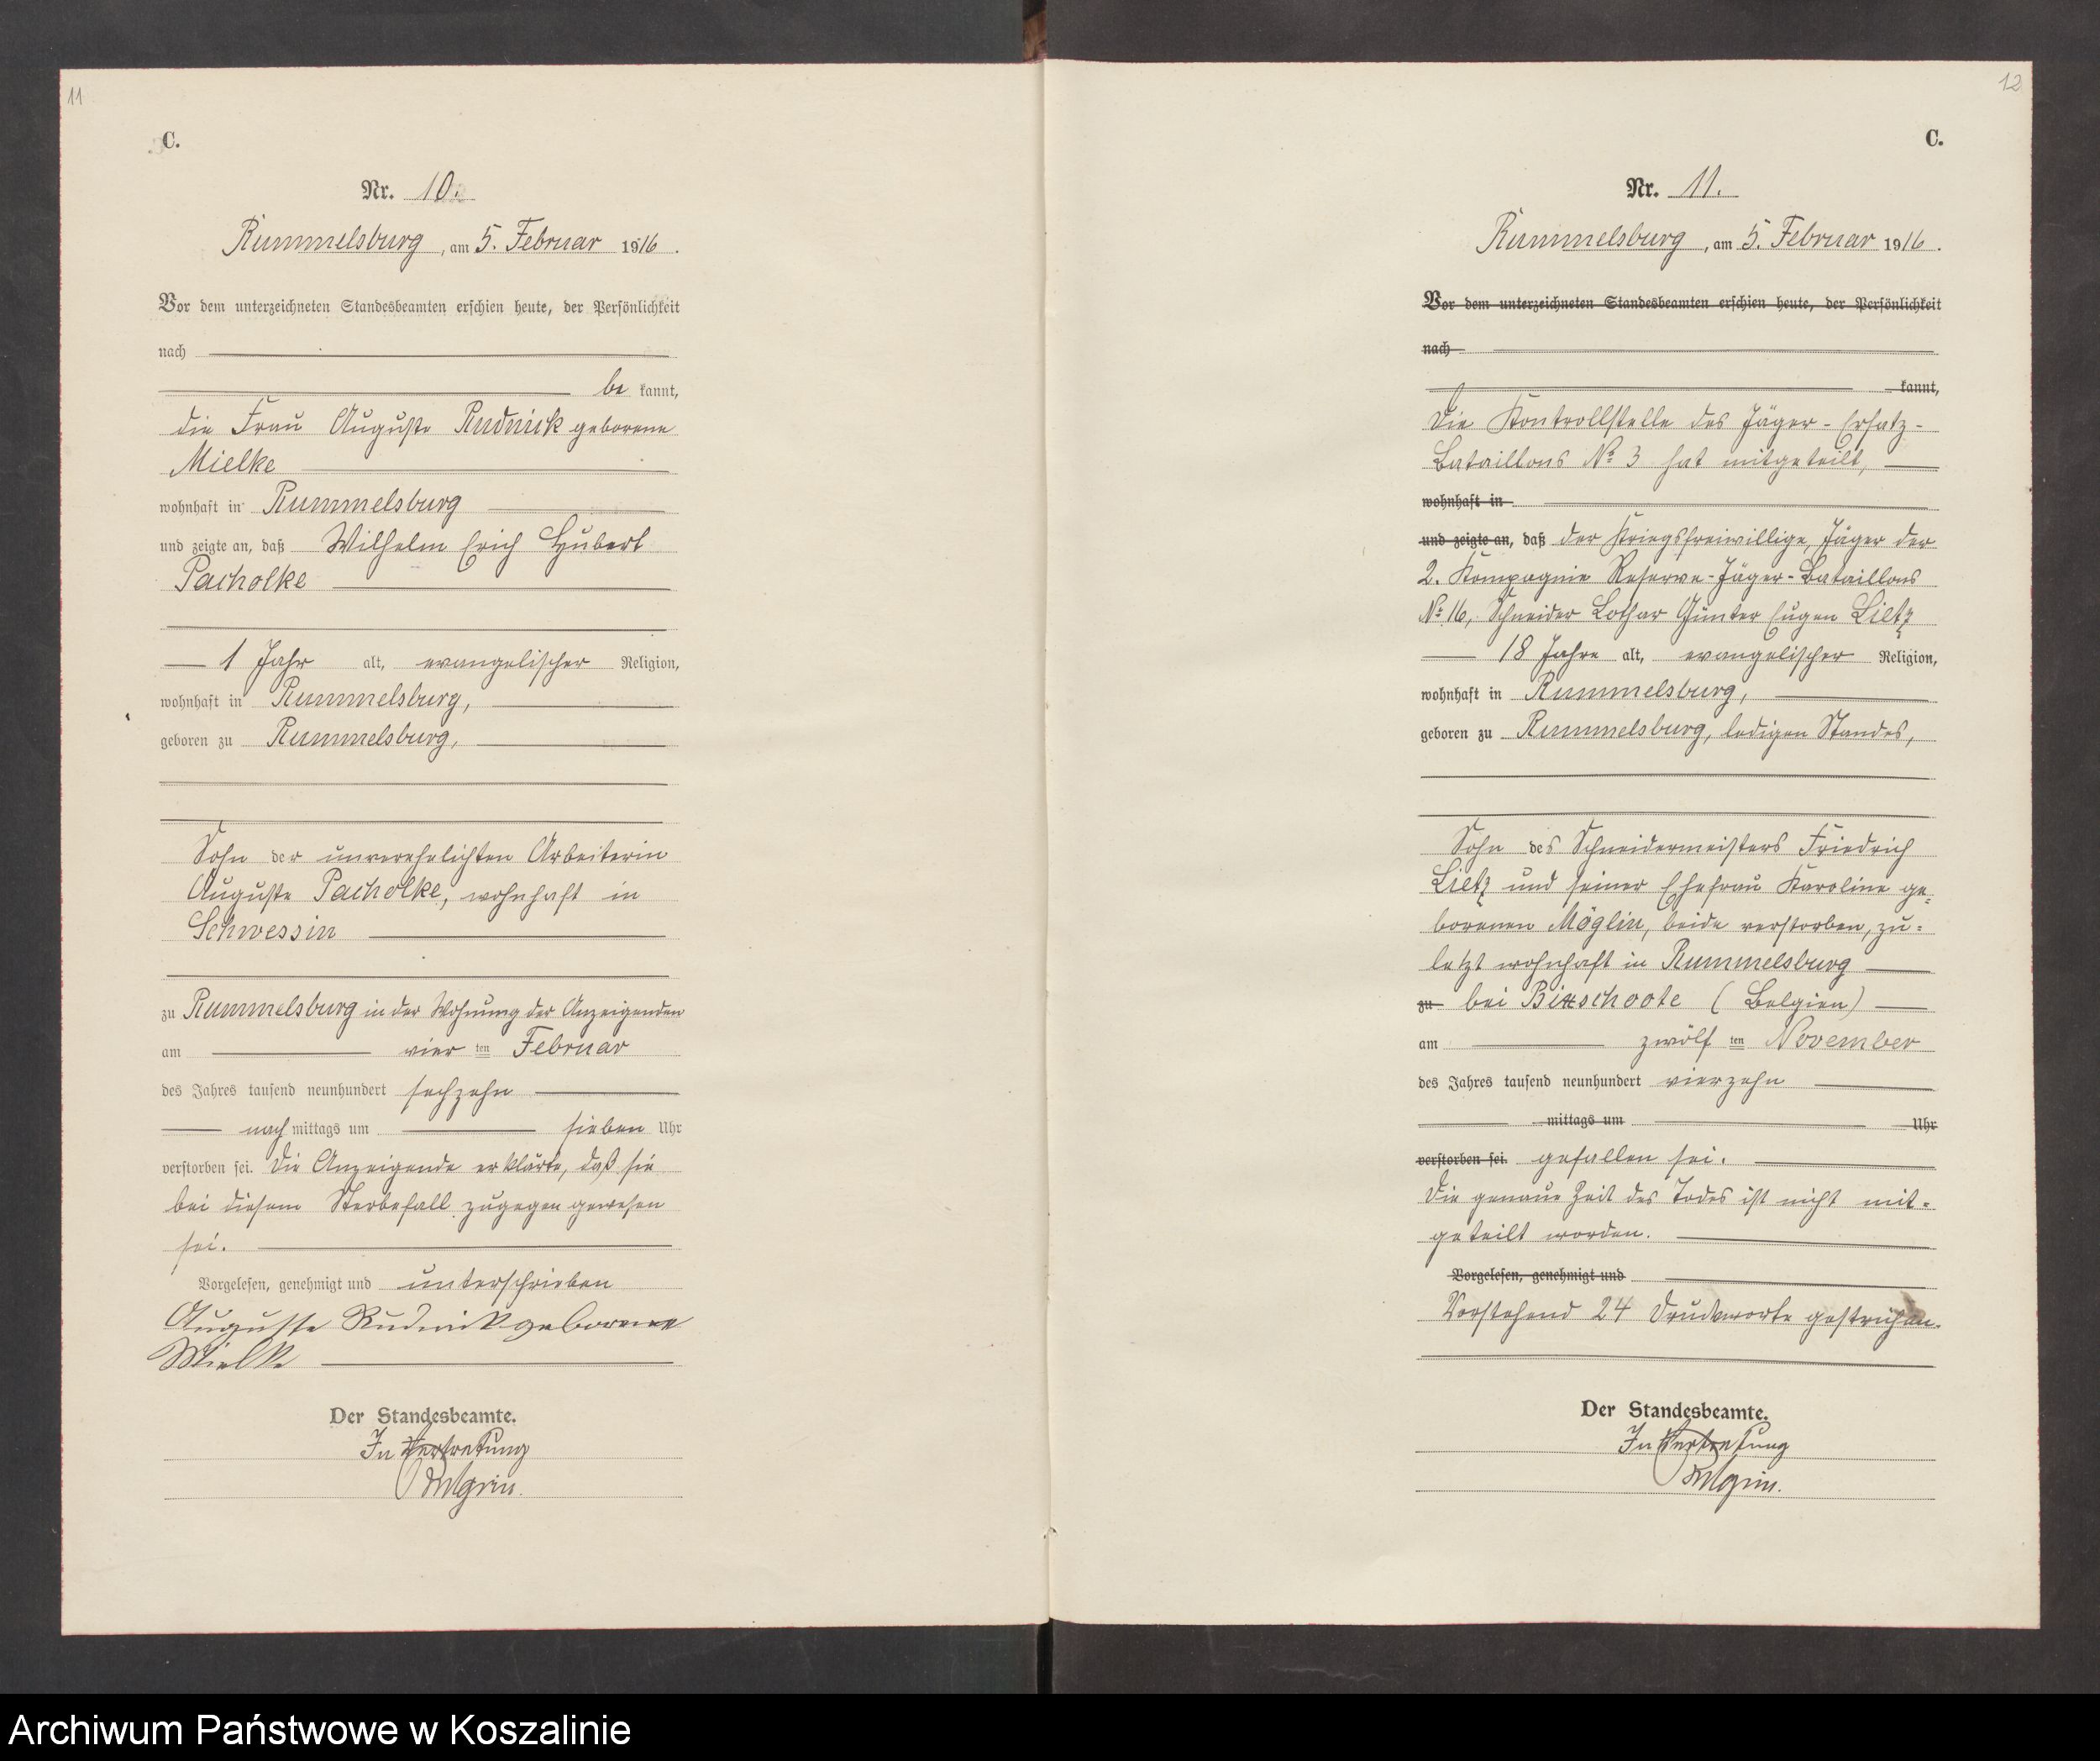 11
C.
Nr. 10.
Rummelsburg, am 5. Februar 1916.
Vor dem unterzeichneten Standesbeamten erschien heute, der Persönlichkeit
nach
be kannt,
die Frau Auguste Rudnick geborene
Mielke
wohnhaft in Rummelsburg
und zeigte an, daß Wilhelm Erich Hubert
Pacholke
1 Jahr alt, evangelischer Religion,
wohnhaft in Rummelsburg,
geboren zu Rummelsburg,
Sohn der unverehelichten Arbeiterin
Auguste Pacholke, wohnhaft in
Schwessin
zu Rummelsburg in der Wohnung der Anzeigenden
am vier ten Februar
des Jahres tausend neunhundert sechzehn
nach mittags um sieben Uhr
verstorben sei. Die Anzeigende erklärte, daß sie
bei diesem Sterbefall zugegen gewesen
sei.
Vorgelesen, genehmigt und unterschrieben
Auguste Rudnick geborene
Mielke
Der Standesbeamte.
In Vertretung
12
C.
Nr. 11.
Rummelsburg, am 5. Februar 1916.
Vor dem unterzeichneten Standesbeamten erschien heute, der Persönlichkeit
nach
kannt,
Die Kontrollstelle des Jäger-Ersatz-
Bataillons No 3 hat mitgeteilt,
wohnhaft in
und zeigte an, daß der Kriegsfreiwillige, Jäger der
2. Kompagnie Reserve-Jäger-Bataillons
No 16, Schneider Lothar Günter Eugen Lietz
18 Jahre alt, evangelischer Religion,
wohnhaft in Rummelsburg,
geboren zu Rummelsburg, ledigen Standes,
Sohn des Schneidermeisters Friedrich
Lietz und seiner Ehefrau Karoline ge=
borenen Möglin, beide verstorben, zu=
letzt wohnhaft in Rummelsburg
zu bei Bixschoote (Belgien)
am zwölf ten November
des Jahres tausend neunhundert vierzehn
mittags um Uhr
verstorben sei. gefallen sei.
Die genaue Zeit des Todes ist nicht mit=
geteilt worden.
Vorgelesen, genehmigt und
Vorstehend 24 Druckworte gestrichen.
Der Standesbeamte.
In Vertretung
Archiwum Państwowe w Koszalinie